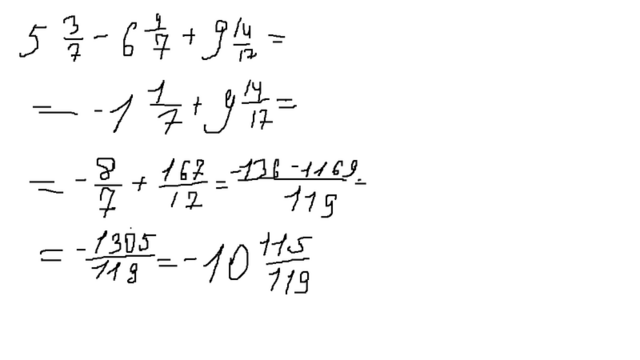 5 3/7 - 6 4/7 + 9 14/17 =
= -1 1/7 + 9 14/17 =
= - 8/7 + 167/17 = -136 - 1169/119 =
= -1305/119 = -10 115/119